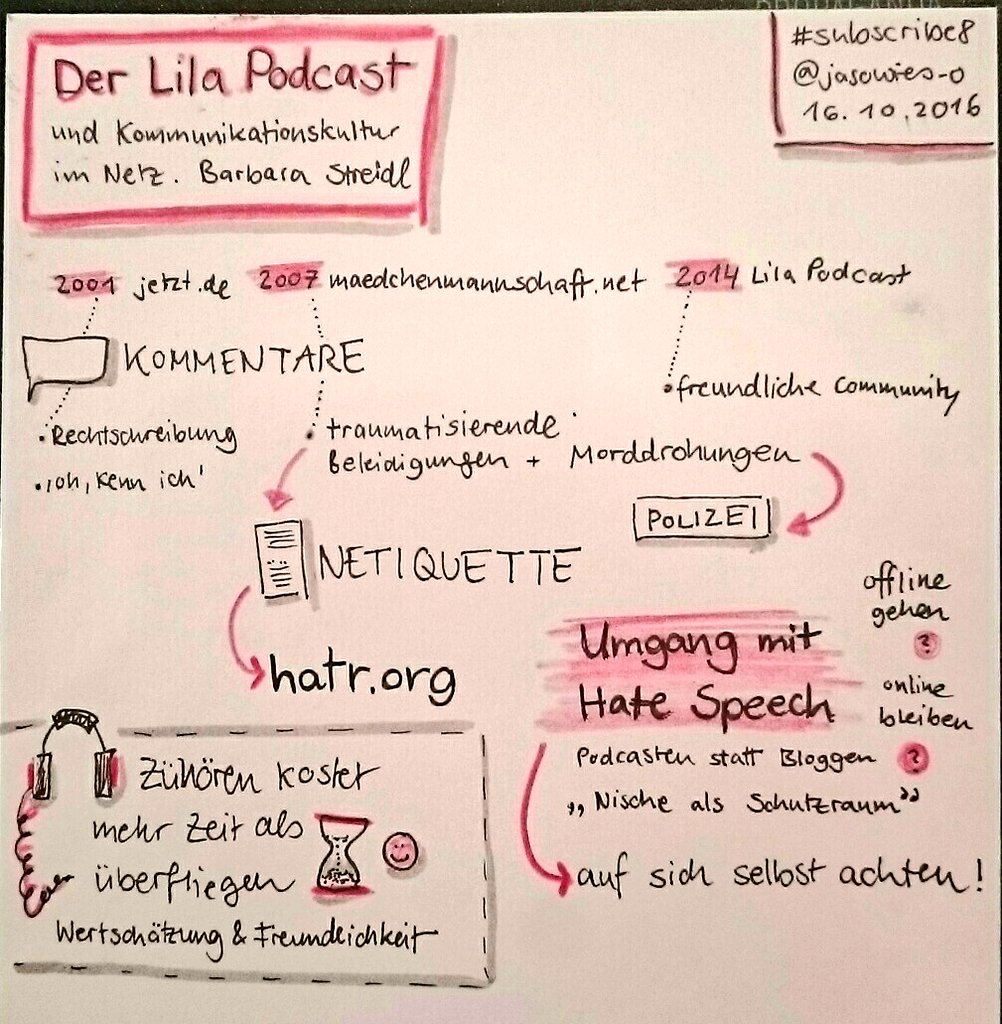 Der Lila Podcast
und Kommunikationskultur
im Netz. Barbara Streidl
#subscribe8
@jasowies-o
16.10.2016
2001 jetzt.de 2007 maedchenmannschaft.net 2014 Lila Podcast
KOMMENTARE
• freundliche Community
• Rechtschreibung
• 'oh, kenn ich'
• traumatisierende
Beleidigungen + Morddrohungen
POLIZEI
NETIQUETTE
hatr.org
offline
gehen
?
online
bleiben
Umgang mit
Hate Speech
Podcasten statt Bloggen ?
„Nische als Schutzraum”
auf sich selbst achten!
Zühören kostet
mehr Zeit als
überfliegen
Wertschätzung & Freundlichkeit